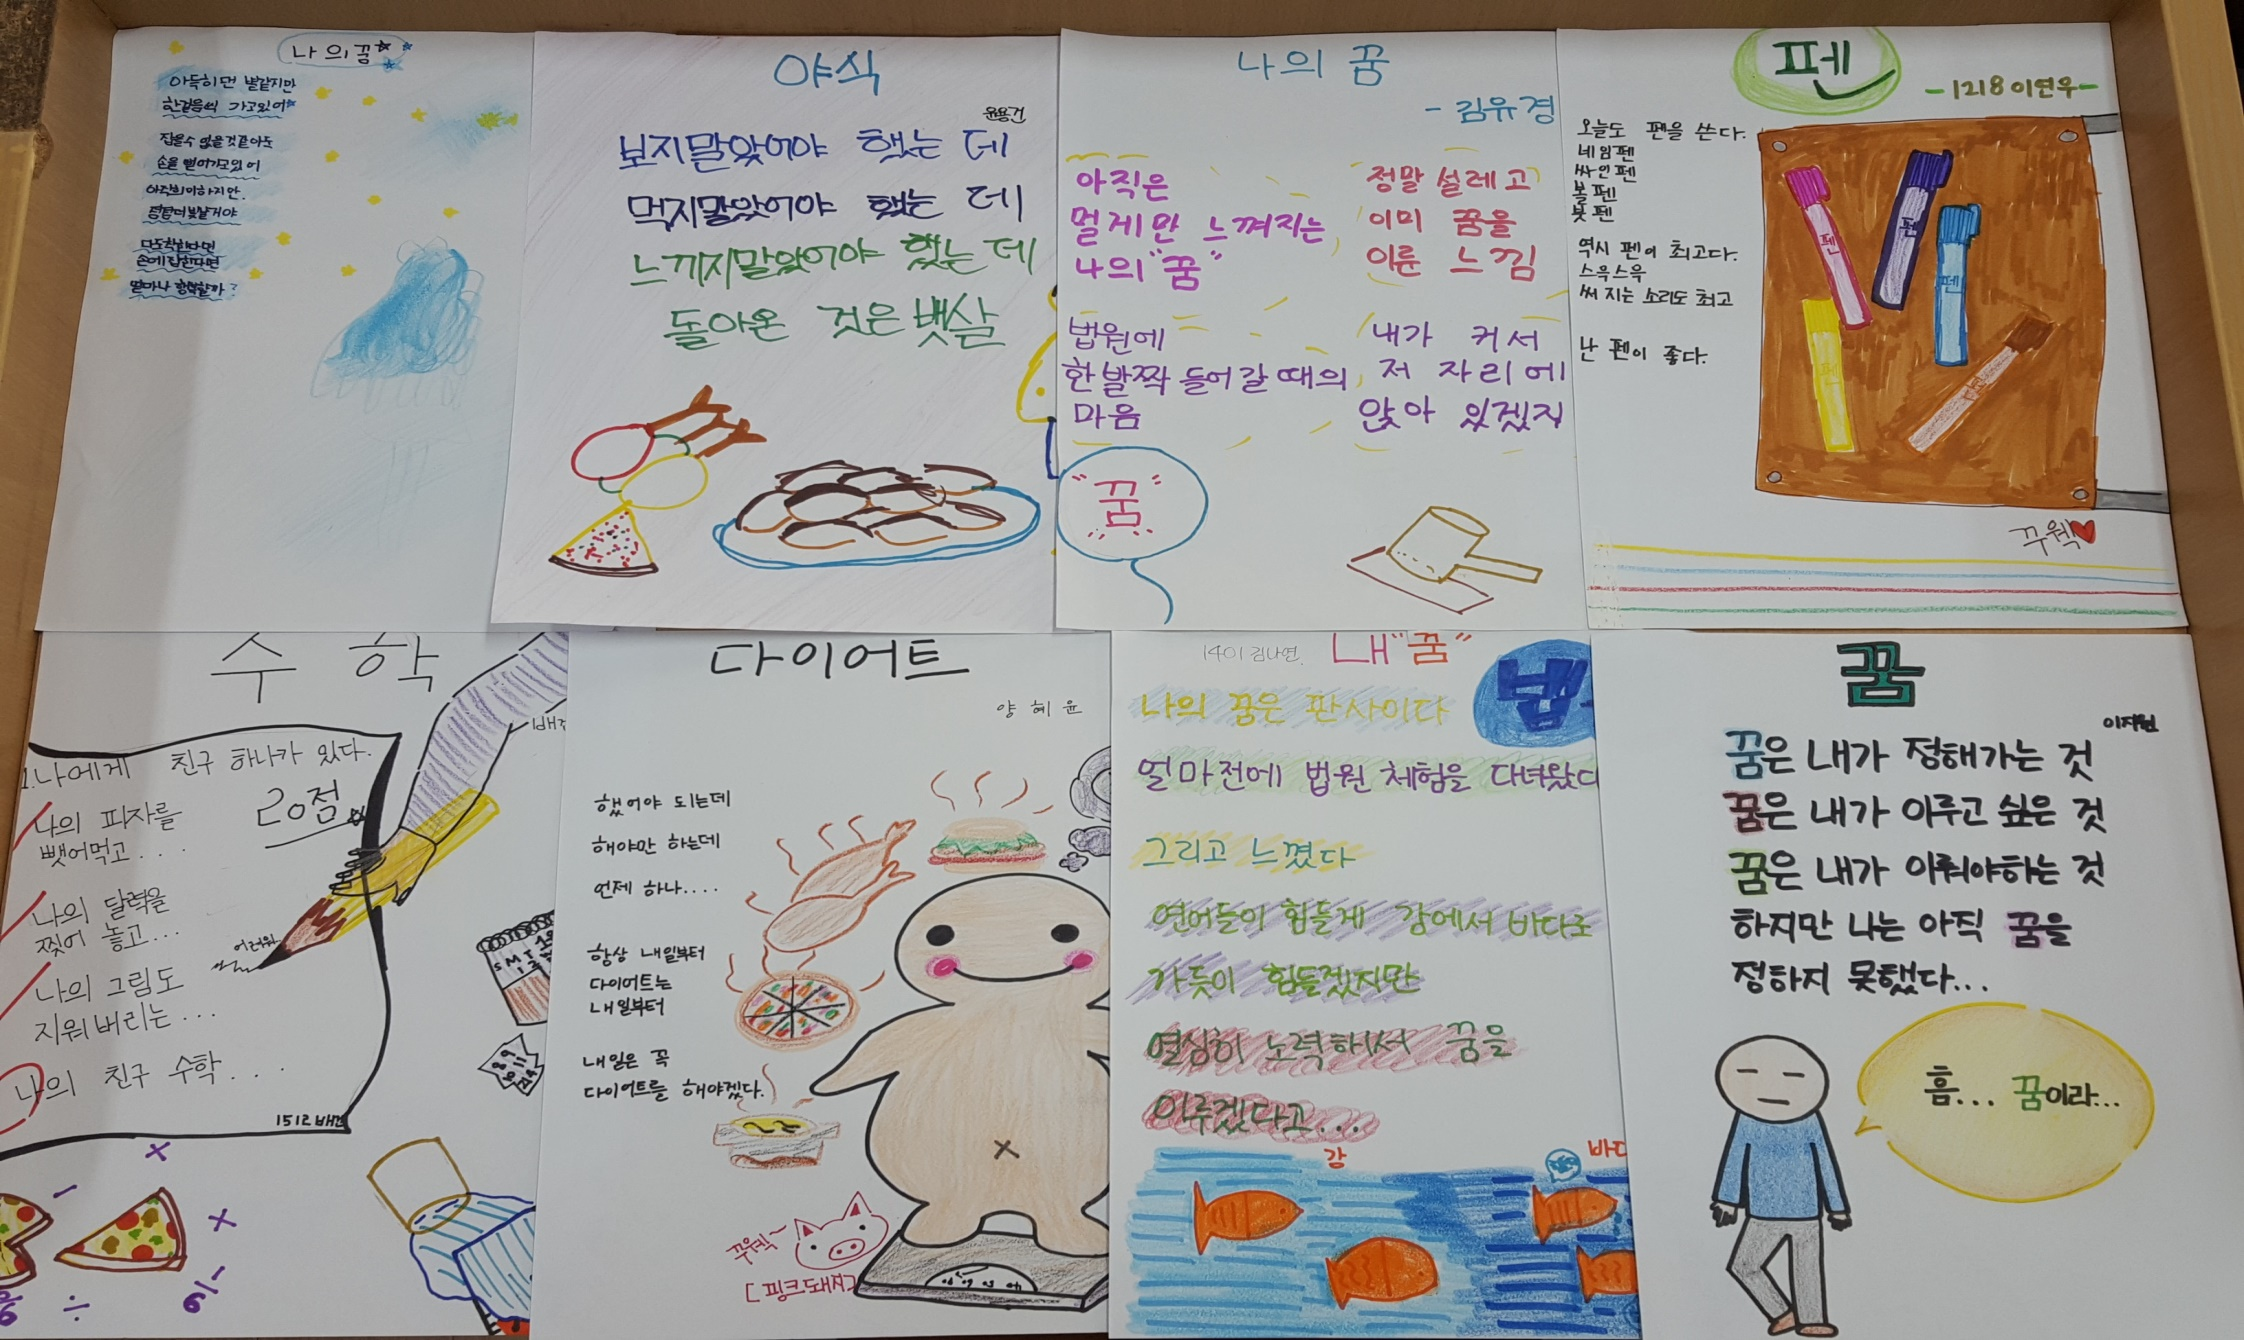 나의꿈
아득히먼 별같지만
한걸음씩 가고있어
잡을수 없을것같아도
손을 뻗어가고있어
아직희미하지만.
점점더빛날거야
다도착한다면
손에잡힌다면
얼마나 행복할까?
야식
윤용건
보지말았어야 했는 데
먹지말았어야 했는 데
느끼지말았어야 했는데
돌아온 것은 뱃살
나의 꿈
- 김유경
아직은
멀게만 느껴지는
나의 "꿈"
법원에
한발짝 들어갈때의
마음
정말 설레고
이미 꿈을
이룬 느낌
내가 커서
저 자리에
앉아 있겠지
"꿈"
펜
-1218 이연우-
오늘도 펜을 쓴다.
네임펜
싸인펜
볼펜
붓펜
역시 펜이 최고다.
스윽스윽
써지는 소리도 최고
난 펜이 좋다.
펜
펜
펜
펜
꾸웩
수 학
1.나에게 친구 하나가 있다.
20점
나의 피자를
뺏어먹고...
나의 달력을
찢어 놓고...
나의 그림도
지워버리는...
나의 친구 수학...
어려워
S M T
÷
다이어트
양혜윤
했어야 되는데
해야만 하는데
언제 하나....
항상 내일부터
다이어트는
내일부터
내일은 꼭
다이어트를 해야겠다.
꾸웩~
[핑크돼지]
1401 김나연. 내"꿈"
법
나의 꿈은 판사이다
얼마전에 법원 체험을 다녀왔다
그리고 느꼈다
연어들이 힘들게 강에서 바다로
가듯이 힘들겠지만
열심히 노력해서 꿈을
이루겠다고...
강
꿈
이지원
꿈은 내가 정해가는 것
꿈은 내가 이루고 싶은 것
꿈은 내가 이뤄야하는 것
하지만 나는 아직 꿈을
정하지 못했다...
흠... 꿈이라...